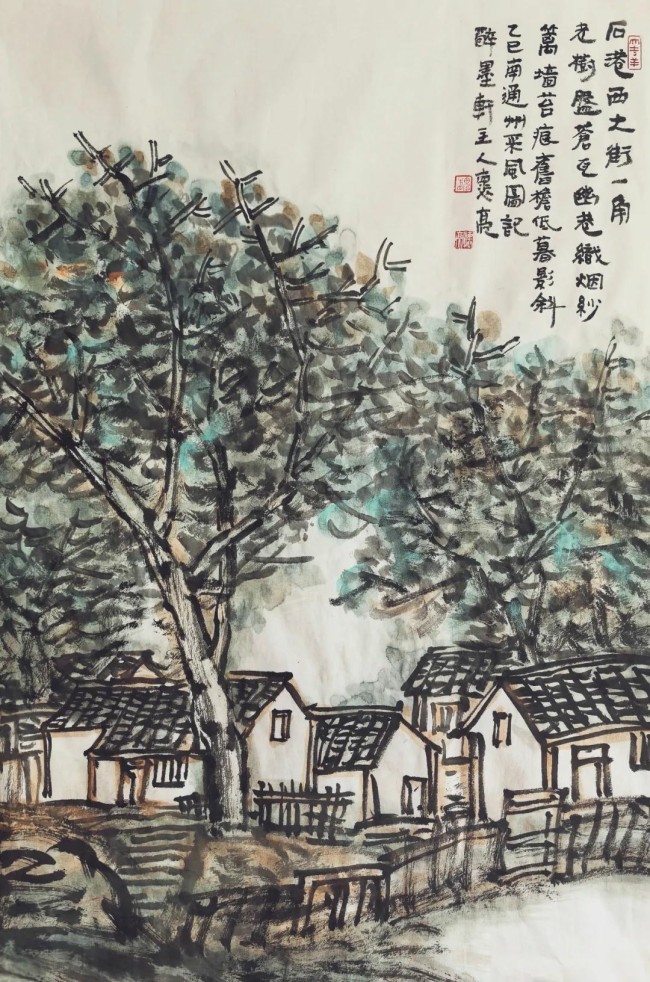 石港西大街一角
老樹盤蒼瓦幽巷織烟紗
篱墙苔痕舊檐低暮影斜
乙巳南通州采風圖記
醉墨軒主人